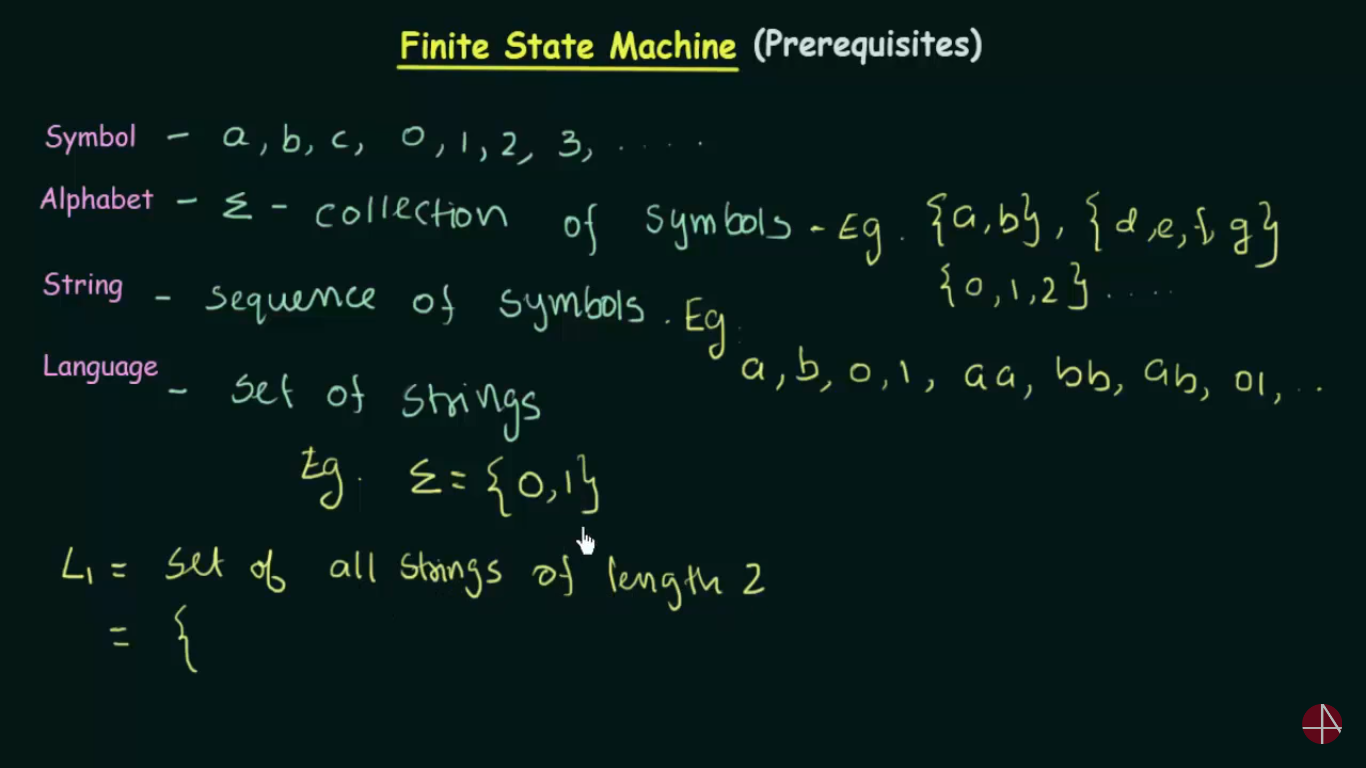 Finite State Machine (Prerequisites)
Symbol - a, b, c, 0, 1, 2, 3, .....
Alphabet - Σ - collection of symbols - Eg. {a,b}, {d,e,f,g}
{0,1,2} ....
String - sequence of symbols. Eg.
a, b, 0, 1, aa, bb, ab, 01, ...
Language - set of strings
Eg. Σ = {0,1}
L1 = set of all strings of length 2
= {